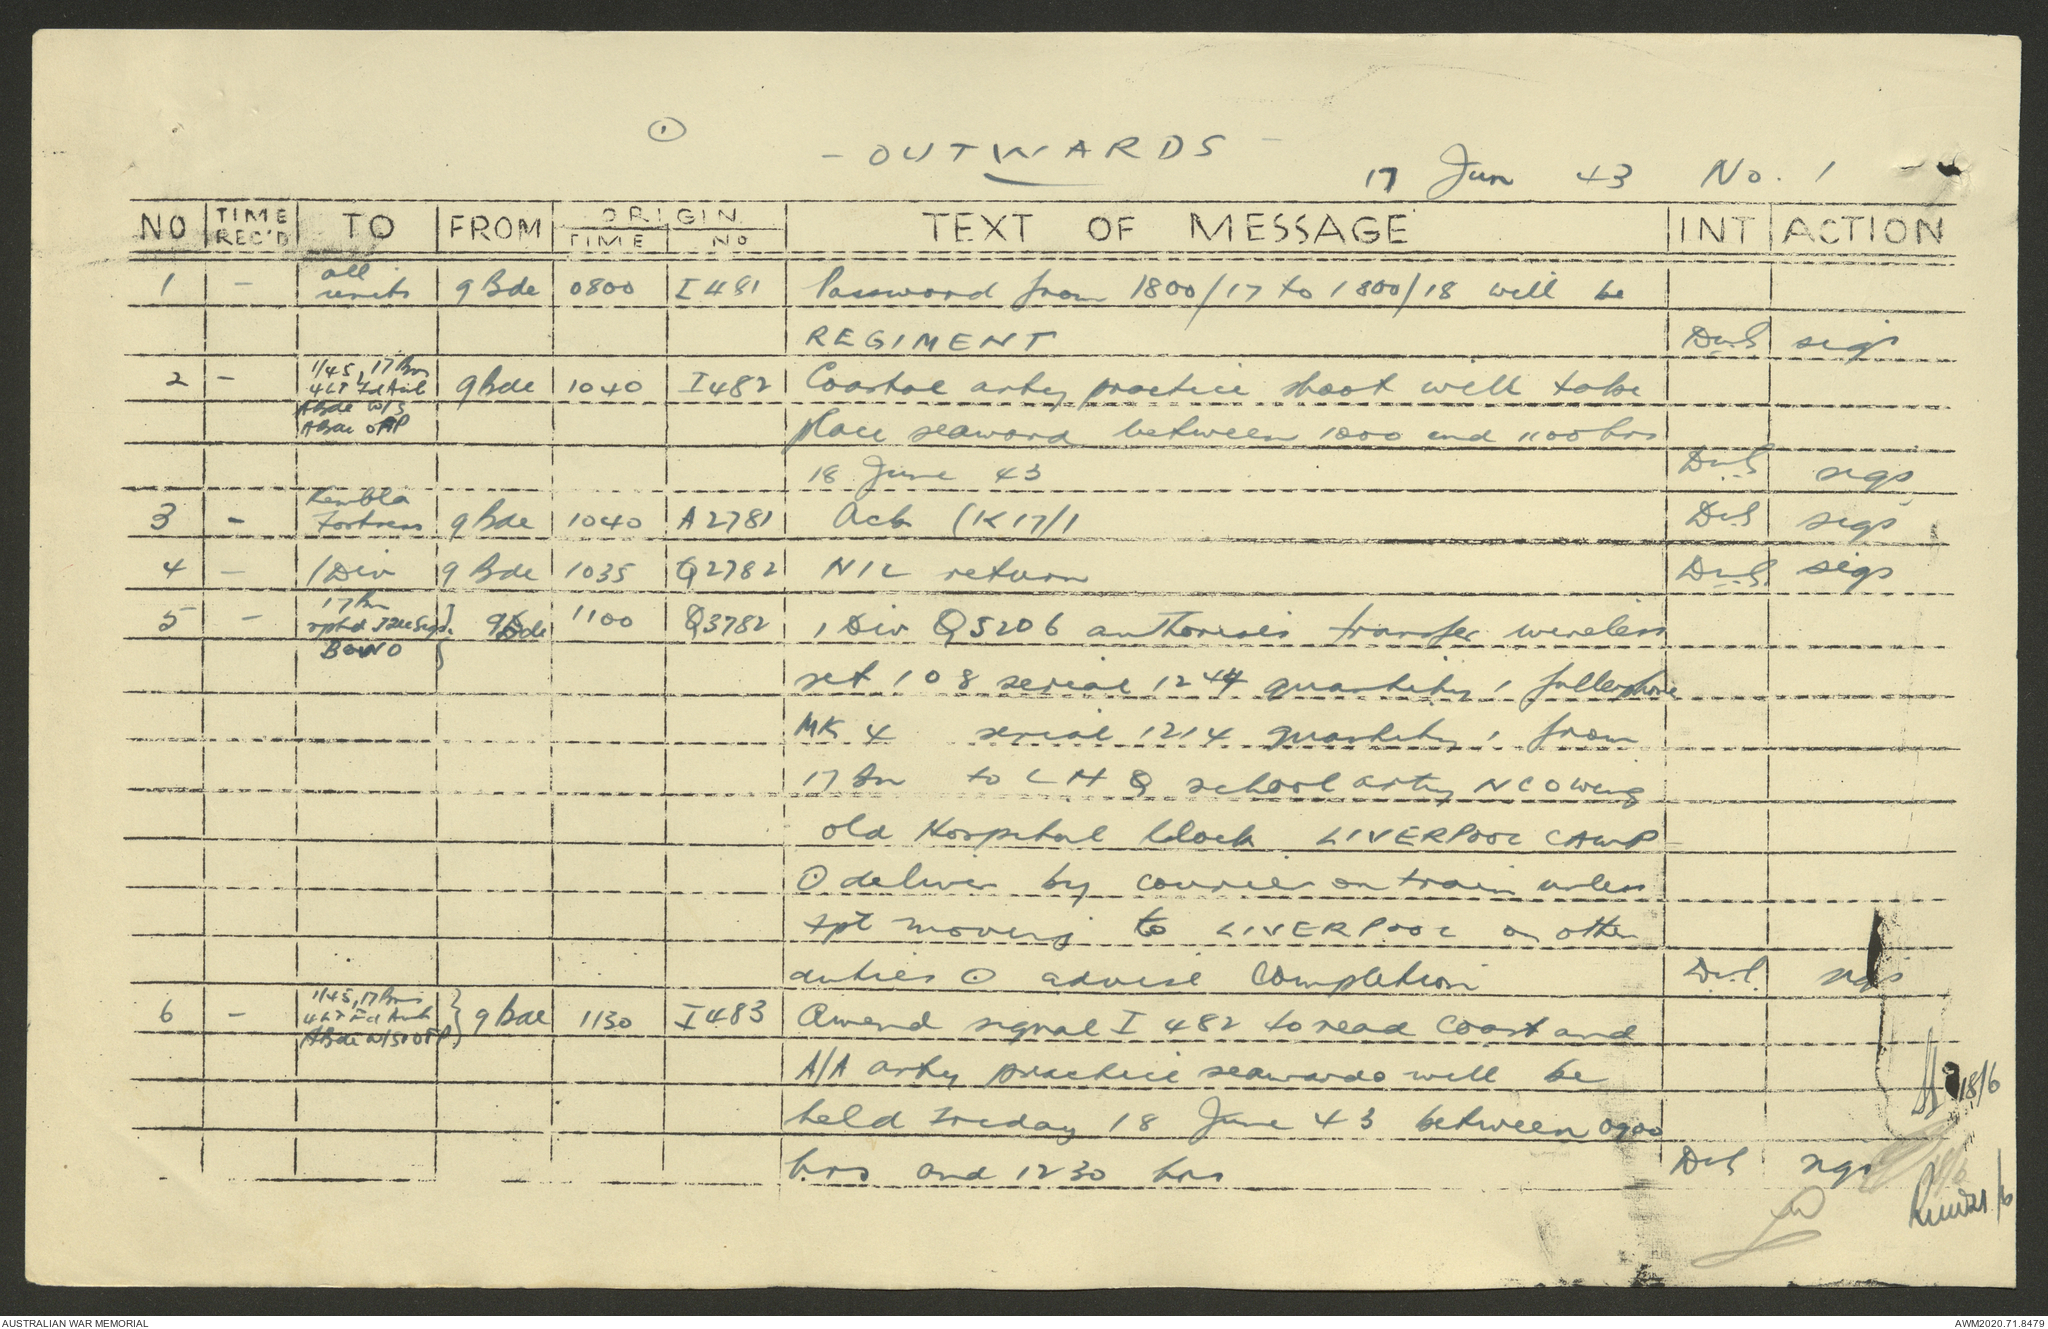 ①
- OUTWARDS -
17 Jun 43 No. 1
NO TIME REC'D TO FROM ORIGIN TIME NO TEXT OF MESSAGE INT ACTION
1 - all units 9 Bde 0800 I 481 Password from 1800/17 to 1800/18 will be
REGIMENT sigs
2 - 1/45, 17 Bns 4 LT Fd Amb 9 Bde 1040 I 482 Coastal arty practice shoot will take
place seaward between 1000 and 1100 hrs
18 June 43 sigs
3 - Kembla Fortress 9 Bde 1040 A 2781 Ack (K17/1 sigs
4 - 1 Div 9 Bde 1035 Q2782 NIL return sigs
5 - 17 Bn 9 Bde 1100 Q3782 1 Div Q5206 authorises transfer wireless
BOWO
set 108 serial 1244 quantity 1 fullerphone
MK 4 serial 1214 quantity 1 from
17 Bn to LHQ school arty NCO wing
old Hospital block LIVERPOOL CAMP
⊙ deliver by courier on train unless
tpt moving to LIVERPOOL on other
duties ⊙ advise completion sigs
6 - 1/45, 17 Bns 4 LT Fd Amb 9 Bde 1130 I 483 Amend signal I 482 to read Coast and
A/A arty practice seawards will be
held Friday 18 June 43 between 0900
18/6
hrs and 1230 hrs sigs
21/6
AUSTRALIAN WAR MEMORIAL
AWM2020.71.8479